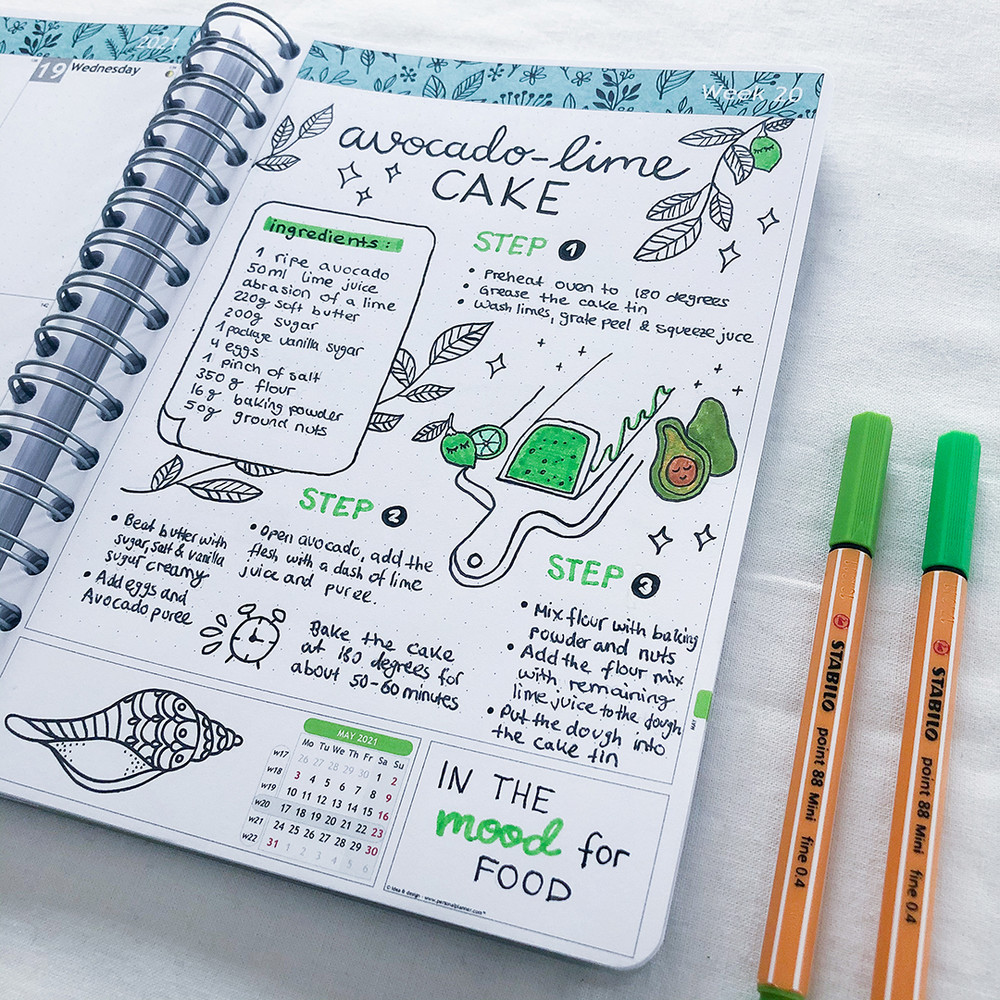 2021
19 Wednesday
Week 20
avocado-lime
CAKE
ingredients:
1 ripe avocado
50ml lime juice
abrasion of a lime
220g soft butter
200g sugar
1 package vanilla sugar
4 eggs
1 pinch of salt
350 g flour
16g baking powder
50g ground nuts
STEP 1
• Preheat oven to 180 degrees
• Grease the cake tin
• Wash limes, grate peel & squeeze juce
STEP 2
• Beat butter with
sugar, salt & vanilla
sugar creamy
• Add eggs and
Avocado puree
• Open avocado, add the
flesh with a dash of lime
juice and puree.
Bake the cake
at 180 degrees for
about 50-60 minutes
STEP 3
• Mix flour with baking
powder and nuts
• Add the flour mix
with remaining
lime juice to the dough
• Put the dough into
the cake tin
MAY
MAY 2021
Mo Tu We Th Fr Sa Su
w17 26 27 28 29 30 1 2
w18 3 4 5 6 7 8 9
w19 10 11 12 13 14 15 16
w20 17 18 19 20 21 22 23
w21 24 25 26 27 28 29 30
w22 31 1 2 3 4 5 6
IN THE
mood for
FOOD
© Idea & design - www.personalplanner.com
STABILO point 88 Mini fine 0.4
STABILO point 88 Mini fine 0.4